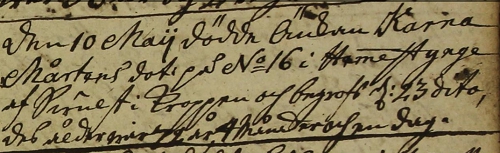 Den 10 Maij dödde Änckan Karna
Mårtens dot: på No 16 i Hemestynge
af i Kroppen och begrofs d: 23 dito,
des ålder war 72 år, 4 Månader och en dag.